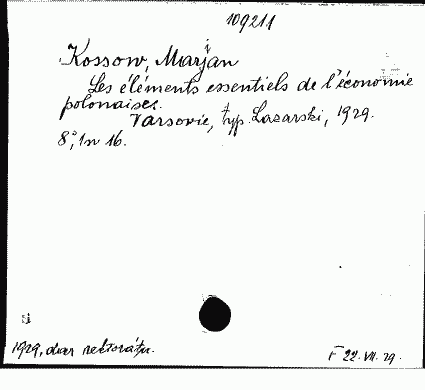 109211
Kossow, Marjan
Les éléments essentiels de l'économie
polonaises.
Varsovie, typ. Lazarski, 1929.
8°, 1n 16.
1929, dar rektorátu.
F 22. VII. 29.